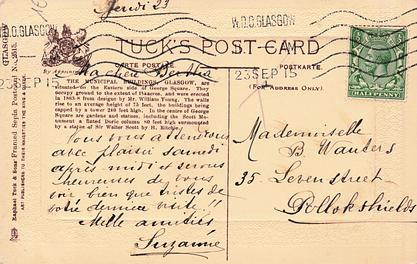 Jeudi 23
GLASGOW
W.D.C. GLASGOW
TUCK'S POST CARD
CARTE POSTALE
POSTKARTE.
23 SEP 15
23 SEP 15
(FOR ADDRESS ONLY)
Ma chère Bertha
THE MUNICIPAL BUILDINGS, GLASGOW, are
situated on the Eastern side of George Square. They
occupy to the extent of and were erected
in 1883-8 from designs by Mr. William Young. The walls
rise to an average height of 75 feet, the building being
capped by a tower 240 feet high. In the centre of George
Square are gardens and statues, including the Scott Monu-
ment a fluted Doric column 80 feet high surmounted
by a statue of Sir Walter Scott by H. Ritchie.
Vous vous attendons
avec plaisir samedi
après midi et serons
heureuses de vous
voir bien que tristes de
votre dernière visite!!
Mille amitiés
Suzanne
Mademoiselle
B. Wanders
35 Leven street
Pollokshields
Raphael Tuck & Sons
ART PUBLISHERS TO THEIR MAJESTIES THE KING & QUEEN